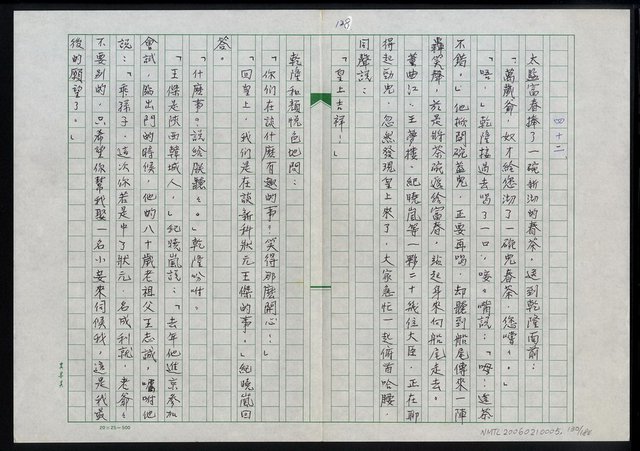 128
四十二
太監富春捧了一碗新沏的春茶，送到乾隆面前：
「萬歲爺，奴才給您沏了一碗兒春茶，您嚐嚐。」
「唔。」乾隆接過去喝了一口，咂咂嘴説：「嗯！這茶
不錯。」他掀開碗蓋兒，正要再喝，却聽到船尾傳來一陣
轟笑聲，於是將茶碗遞給富春，站起身來向船尾走去。
董曲江、王夢樓、紀曉嵐等一夥二十幾位大臣，正在聊
得起勁兒，忽然發現皇上來了，大家急忙一起俯首哈腰，
同聲説：
「皇上吉祥！」
乾隆和顏悅色地問：
「你們在談什麼有趣的事？笑得那麼開心！」
「回皇上，我們是在談新科狀元王傑的事。」紀曉嵐回
答。
「什麼事？説給朕聽聽。」乾隆吟咐。
「王傑是陝西韓城人，」紀曉嵐説：「去年他進京參加
會試，臨出門的時候，他的八十歲老祖父王志誠，囑咐他
説：『乖孫子，這次你若是中了狀元，名成利就，老爺爺
不要別的，只希望你幫我娶一名小妾來伺候我，這是我最
後的願望了。』
20×25=500
NMTL20060210005, 130/186